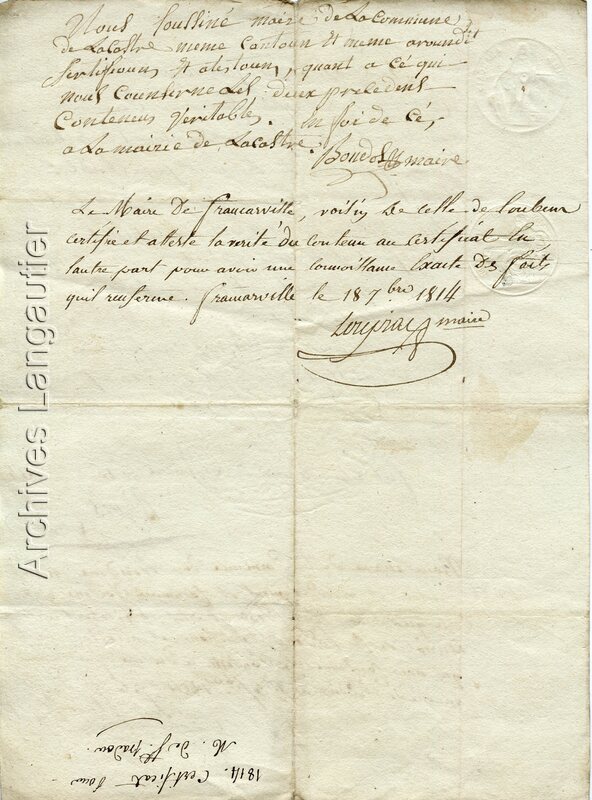 Nous soussiné maire de La Commune
de Lacastre meme contoun Et meme aroundit
sertifioun Et atestoun, quant a cé qui
nous counserne Les deux precedent
Conteneus Veritables. En foi de cé,
a La mairie de Lacastre.
maire
Le Maire De francarville, voisin De celle de Loubens
certifie et atteste la verité du contenu au certificat En
lautre part pour avoir une connoissance Exacte des faits
quil renferme. francarville le 18 7bre 1814
maire
Archives Langautier
1814. Certificat pour
M. de St.